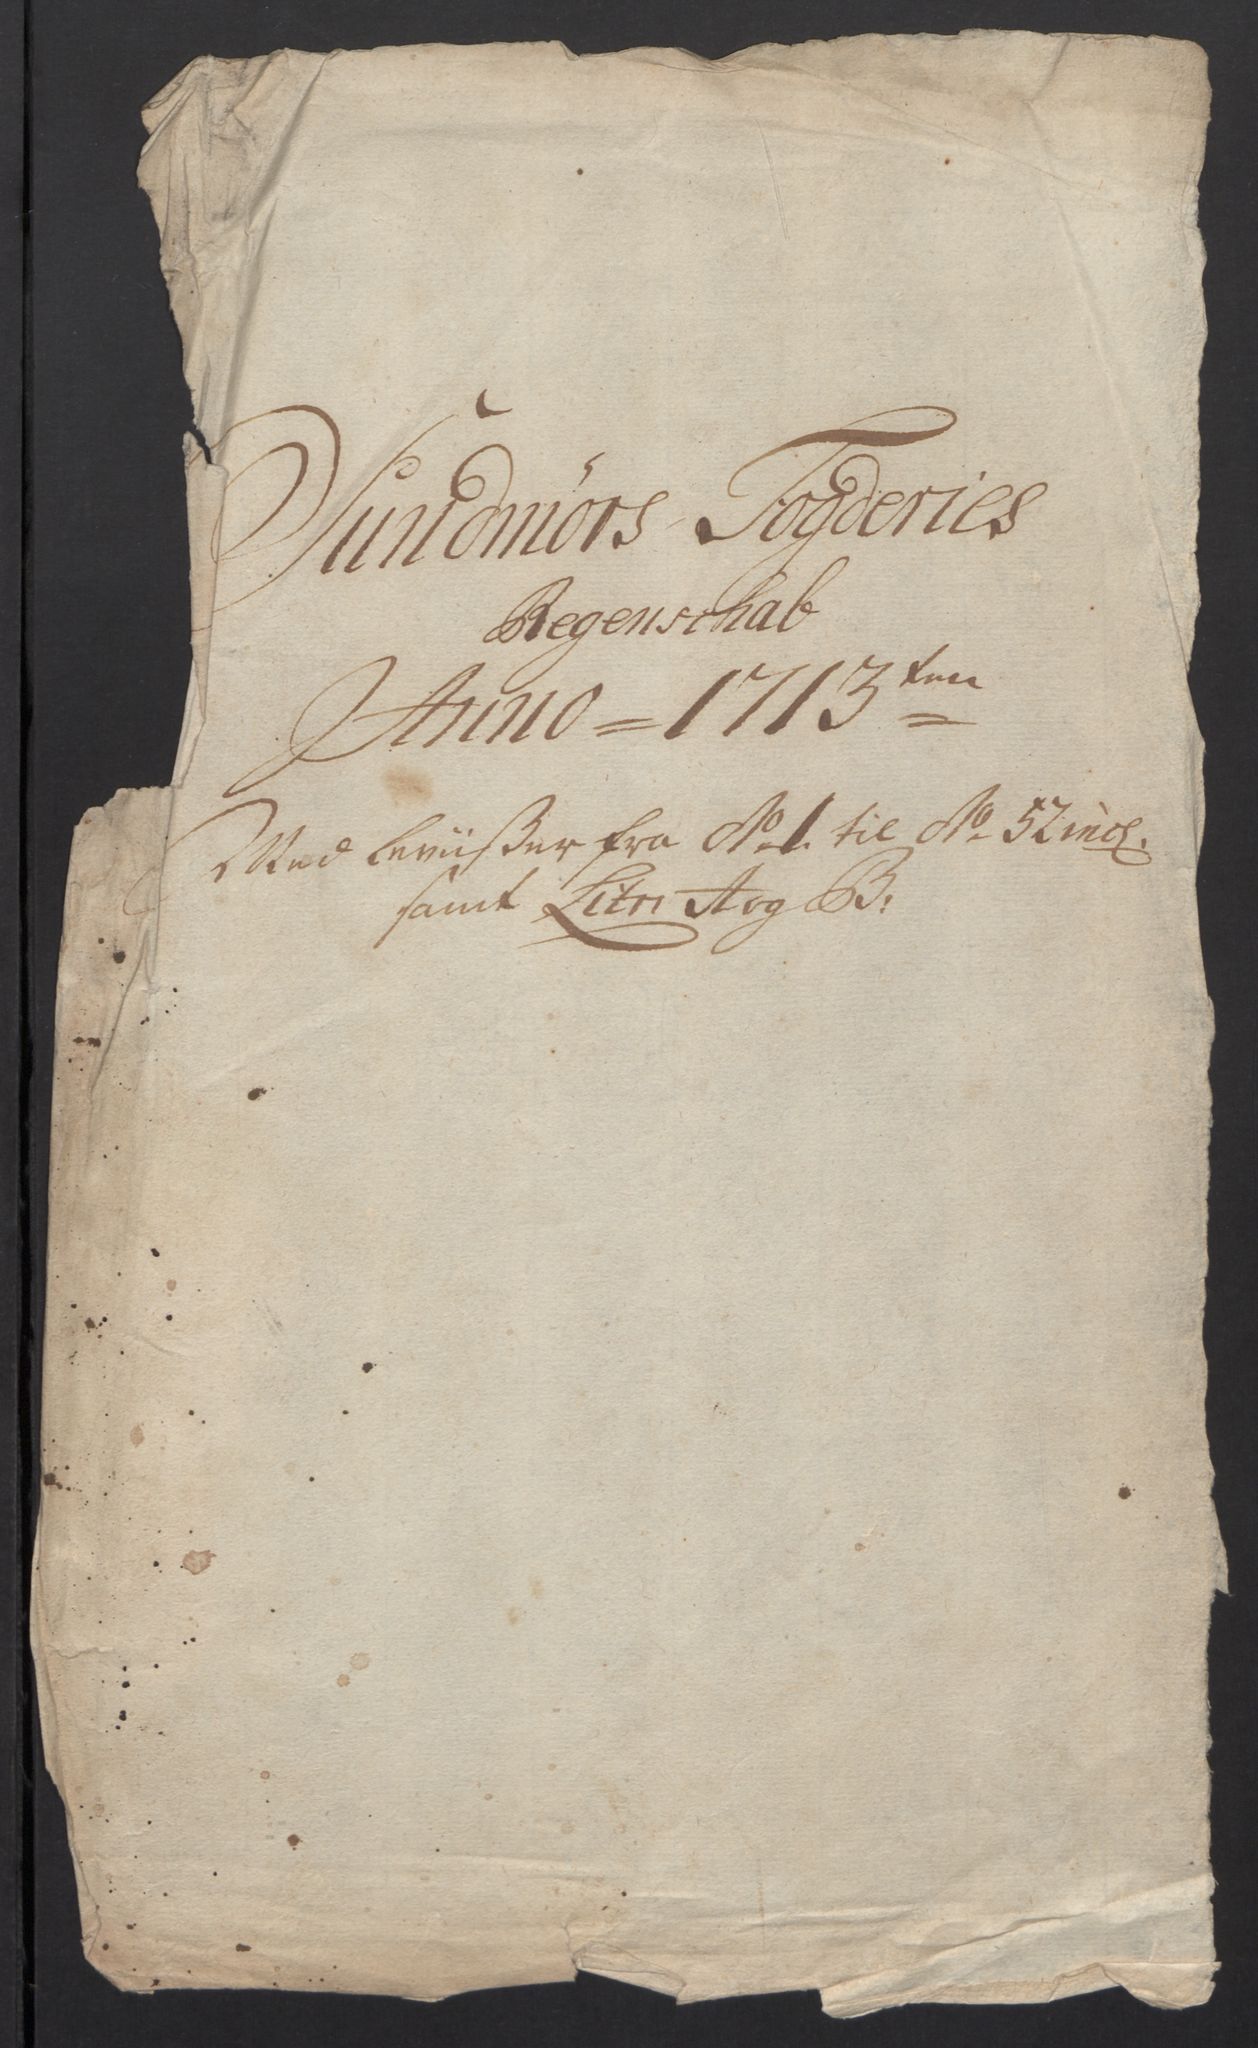 Sundmörs Fogderies
Regenschab
Anno = 1713 ten =
Med beviißer fra No 1. til No 52 incl.
samt Litr: A og B: